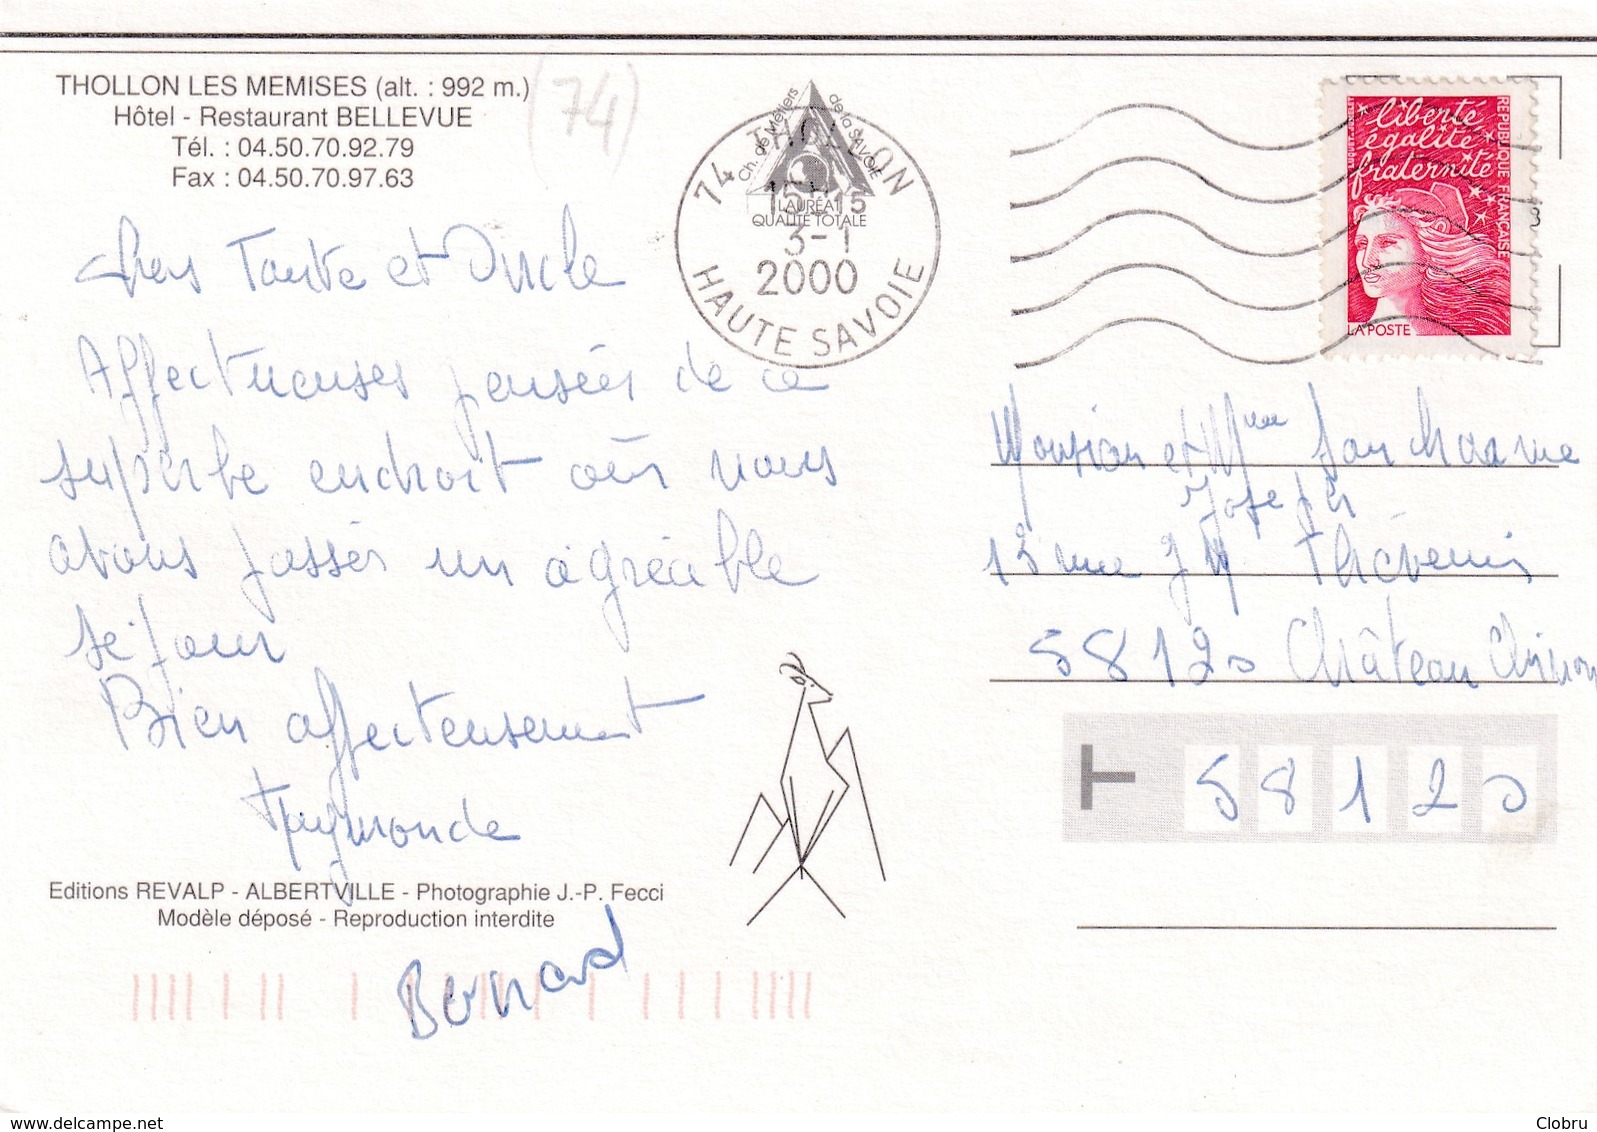 THOLLON LES MEMISES (alt. : 992 m.)
Hôtel - Restaurant BELLEVUE
Tél. : 04.50.70.92.79
Fax : 04.50.70.97.63
(74)
Ch. de Métiers de la SAVOIE
LAURÉAT
QUALITÉ TOTALE
74 THOLLON
15H15
3-1
2000
HAUTE SAVOIE
liberté
égalité
fraternité
REPUBLIQUE FRANÇAISE
LA POSTE
3
Chers Tante et Oncle
Affectueuses pensées de ce
superbe endroit où nous
avons passés un agréable
séjour
Bien affectueusement
Raymonde
Bernard
Editions REVALP - ALBERTVILLE - Photographie J.-P. Fecci
Modèle déposé - Reproduction interdite
Monsieur et Mme
Joseph
13 rue J M Thévenin
58120 Château Chinon
T 58120
delcampe.net
Clobru